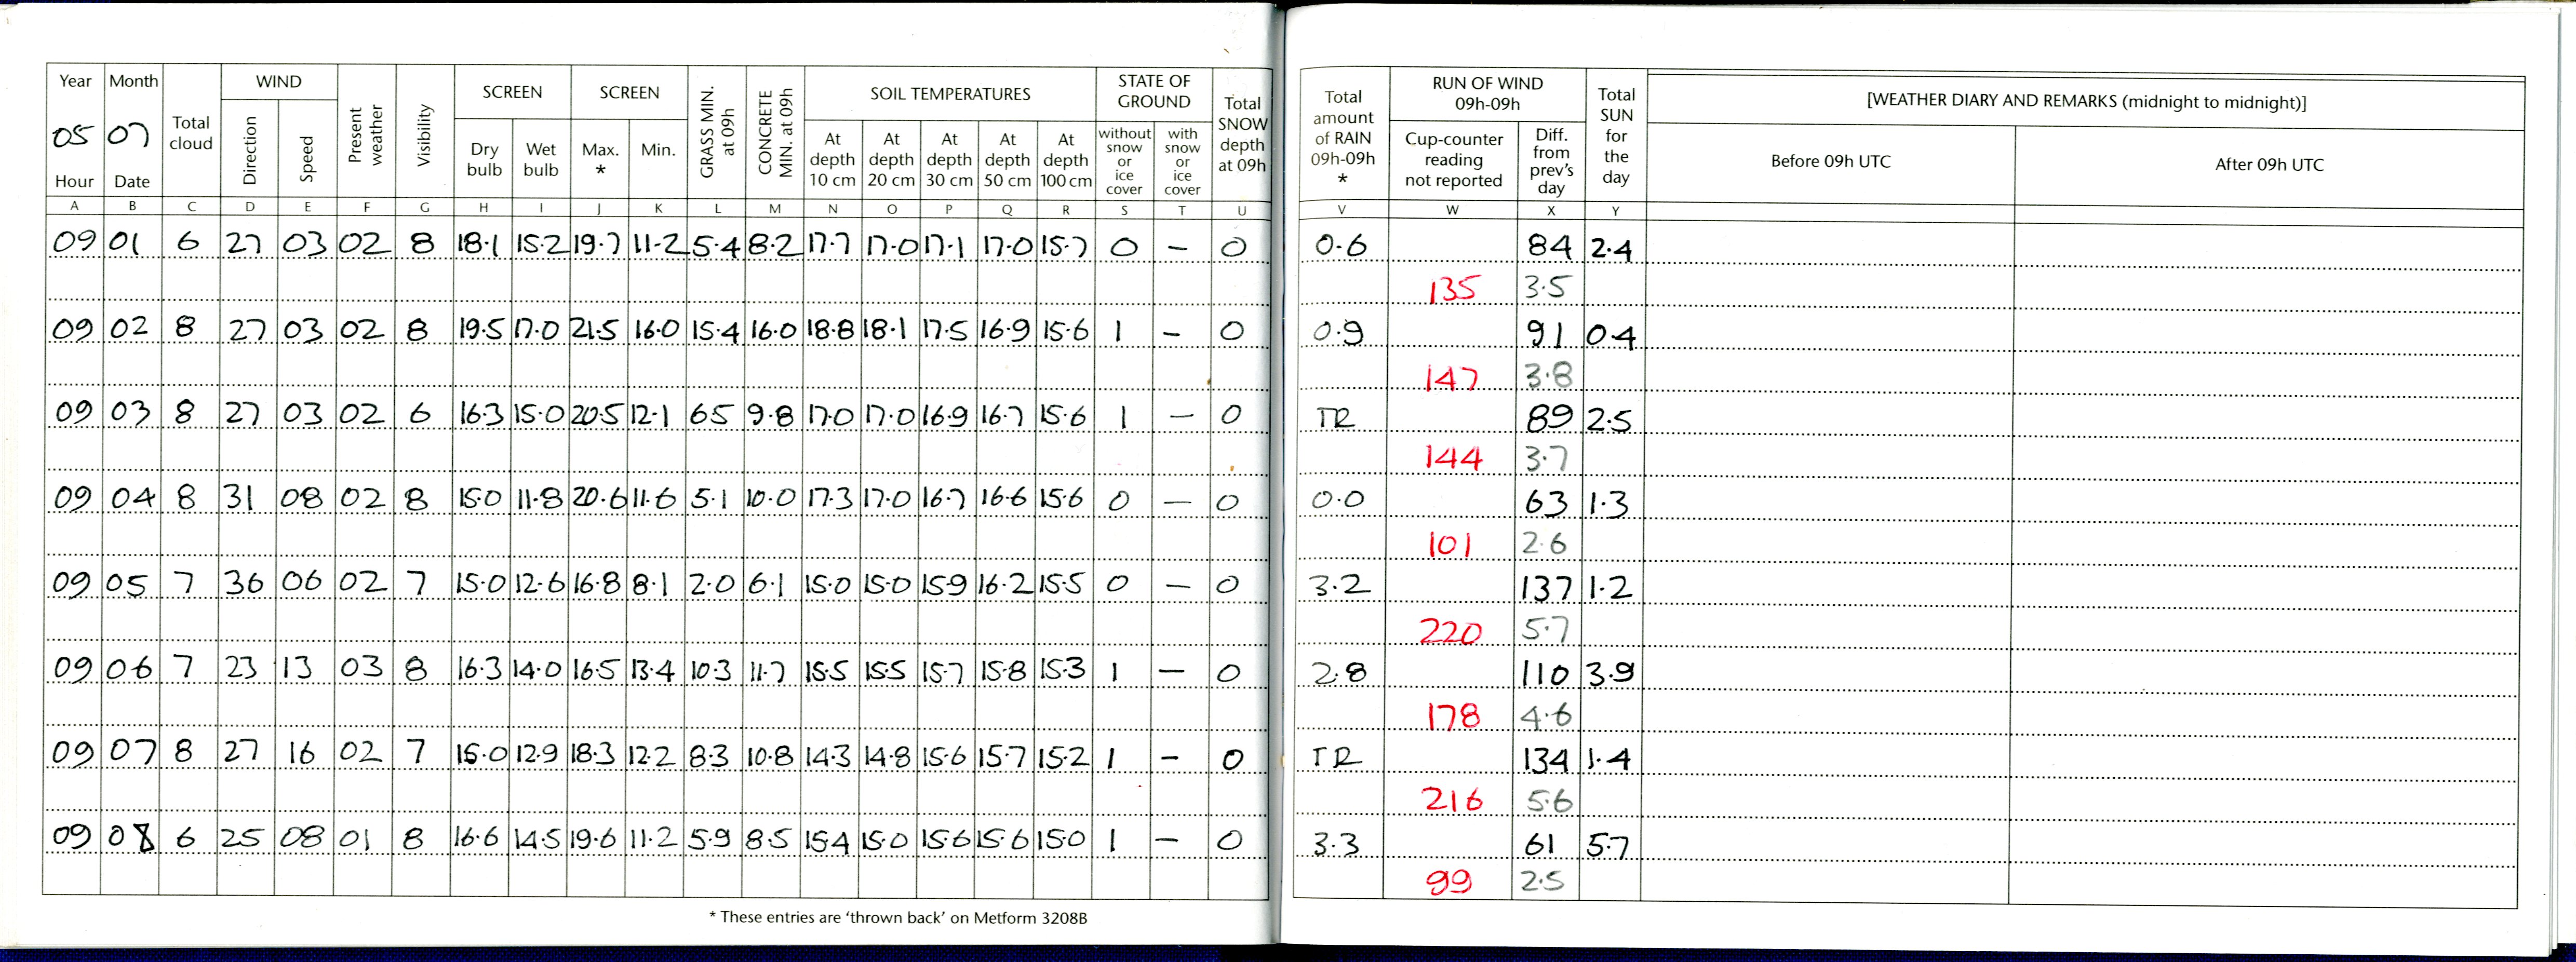 Year Month Total cloud WIND Present weather Visibility SCREEN SCREEN GRASS MIN. at 09h CONCRETE MIN. at 09h SOIL TEMPERATURES STATE OF GROUND Total SNOW depth at 09h Total amount of RAIN 09h-09h * RUN OF WIND 09h-09h Total SUN for the day [WEATHER DIARY AND REMARKS (midnight to midnight)]
05 07 Direction Speed Dry bulb Wet bulb Max. * Min. At depth 10 cm At depth 20 cm At depth 30 cm At depth 50 cm At depth 100 cm without snow or ice cover with snow or ice cover Cup-counter reading not reported Diff. from prev's day Before 09h UTC After 09h UTC
Hour Date
A B C D E F G H I J K L M N O P Q R S T U V W X Y
09 01 6 27 03 02 8 18.1 15.2 19.7 11.2 5.4 8.2 17.7 17.0 17.1 17.0 15.7 0 – 0 0.6 84 2.4
135 3.5
09 02 8 27 03 02 8 19.5 17.0 21.5 16.0 15.4 16.0 18.8 18.1 17.5 16.9 15.6 1 – 0 0.9 91 0.4
147 3.8
09 03 8 27 03 02 6 16.3 15.0 20.5 12.1 6.5 9.8 17.0 17.0 16.9 16.7 15.6 1 – 0 TR 89 2.5
144 3.7
09 04 8 31 08 02 8 15.0 11.8 20.6 11.6 5.1 10.0 17.3 17.0 16.7 16.6 15.6 0 – 0 0.0 63 1.3
101 2.6
09 05 7 36 06 02 7 15.0 12.6 16.8 8.1 2.0 6.1 15.0 15.0 15.9 16.2 15.5 0 – 0 3.2 137 1.2
220 5.7
09 06 7 23 13 03 8 16.3 14.0 16.5 13.4 10.3 11.7 15.5 15.5 15.7 15.8 15.3 1 – 0 2.8 110 3.9
178 4.6
09 07 8 27 16 02 7 15.0 12.9 18.3 12.2 8.3 10.8 14.3 14.8 15.6 15.7 15.2 1 – 0 TR 134 1.4
216 5.6
09 08 6 25 08 01 8 16.6 14.5 19.6 11.2 5.9 8.5 15.4 15.0 15.6 15.6 15.0 1 – 0 3.3 61 5.7
99 2.5
* These entries are 'thrown back' on Metform 3208B